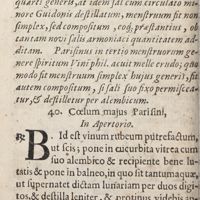 quarti generis, at idem sal cum circulato mi-
nore Guidonis destillatum, menstruum sit non
simplex, sed compositum, coq; præstantius, ob
tantam novi salis armoniaci quantitatem ad-
ditam. Parisinus in tertio menstruorum ge-
nere spiritum Vini phil. acuit melle crudo; qua
modo sit menstruum simplex hujus generis, sit
autem compositum, si sali suo fixo permiscea-
tur, & destilletur per alembicum.
40. Cœlum majus Parisini,
In Apertorio.
℞. Id est vinum rubeum putrefactum,
ut scis; pone in cucurbita vitrea cum
suo alembico & recipiente bene lu-
tatis & pone in balneo, in quo sit tantum aquæ,
ut supernatet dictam lunariam per duos digi-
tos, & destilla leniter, & protinus videbis an-